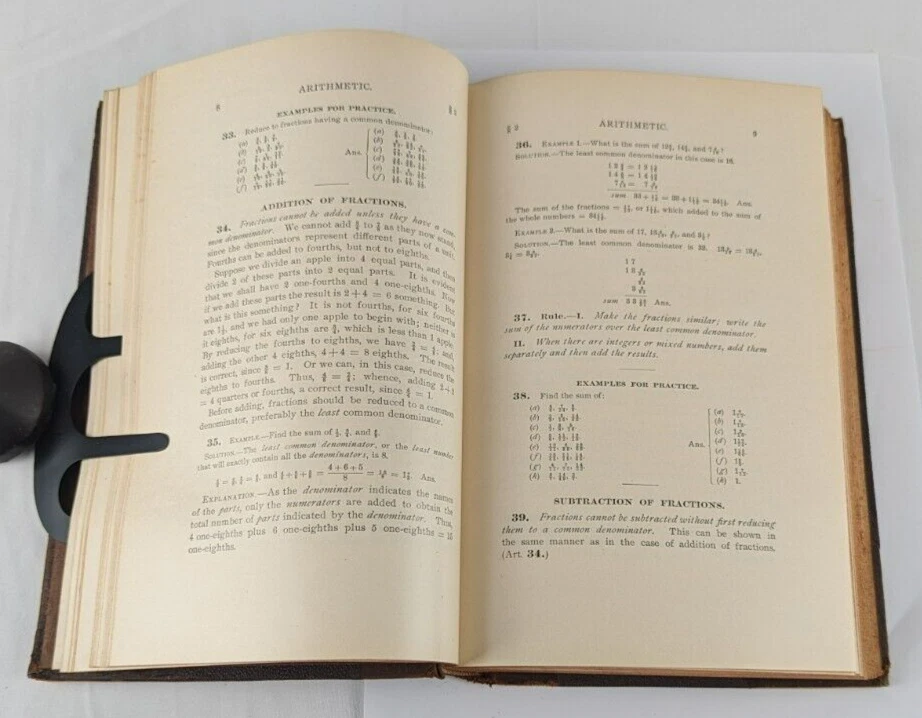 8
ARITHMETIC.
§ 2
EXAMPLES FOR PRACTICE.
33. Reduce to fractions having a common denominator:
(a)
(b)
(c)
(d)
(e)
(f)
Ans.
(a)
(b)
(c)
(d)
(e)
(f)
ADDITION OF FRACTIONS.
34. Fractions cannot be added unless they have a com-
mon denominator. We cannot add ¾ to ⅞ as they now stand,
since the denominators represent different parts of a unit.
Fourths can be added to fourths, but not to eighths.
Suppose we divide an apple into 4 equal parts, and then
divide 2 of these parts into 2 equal parts. It is evident
that we shall have 2 one-fourths and 4 one-eighths. Now
if we add these parts the result is 2 + 4 = 6 something. But
what is this something? It is not fourths, for six fourths
are 1½, and we had only one apple to begin with; neither is
it eighths, for six eighths are ¾, which is less than 1 apple.
By reducing the fourths to eighths, we have 2/4 = 4/8; and,
adding the other 4 eighths, 4 + 4 = 8 eighths. The result
is correct, since 8/8 = 1. Or we can, in this case, reduce the
eighths to fourths. Thus, 4/8 = 2/4; whence, adding 2 + 2
= 4 quarters or fourths, a correct result, since 4/4 = 1.
Before adding, fractions should be reduced to a common
denominator, preferably the least common denominator.
35. EXAMPLE.—Find the sum of ½, ¾, and ⅝.
SOLUTION.—The least common denominator, or the least number
that will exactly contain all the denominators, is 8.
½ = 4/8, ¾ = 6/8, and 4/8 + 6/8 + 5/8 = (4 + 6 + 5)/8 = 15/8 = 1⅞. Ans.
EXPLANATION.—As the denominator indicates the names
of the parts, only the numerators are added to obtain the
total number of parts indicated by the denominator. Thus,
4 one-eighths plus 6 one-eighths plus 5 one-eighths = 15
one-eighths.
§ 2
ARITHMETIC.
9
36. EXAMPLE 1.—What is the sum of
SOLUTION.—The least common denominator in this case is 16.
sum Ans.
The sum of the fractions = which added to the sum of
the whole numbers =
EXAMPLE 2.—What is the sum of 17,
SOLUTION.—The least common denominator is 32.
17
sum Ans.
37. Rule.—I. Make the fractions similar; write the
sum of the numerators over the least common denominator.
II. When there are integers or mixed numbers, add them
separately and then add the results.
EXAMPLES FOR PRACTICE.
38. Find the sum of:
(a)
(b)
(c)
(d)
(e)
(f)
(g)
(h)
Ans.
(a)
(b)
(c)
(d)
(e)
(f)
(g)
(h) 1.
SUBTRACTION OF FRACTIONS.
39. Fractions cannot be subtracted without first reducing
them to a common denominator. This can be shown in
the same manner as in the case of addition of fractions.
(Art. 34.)